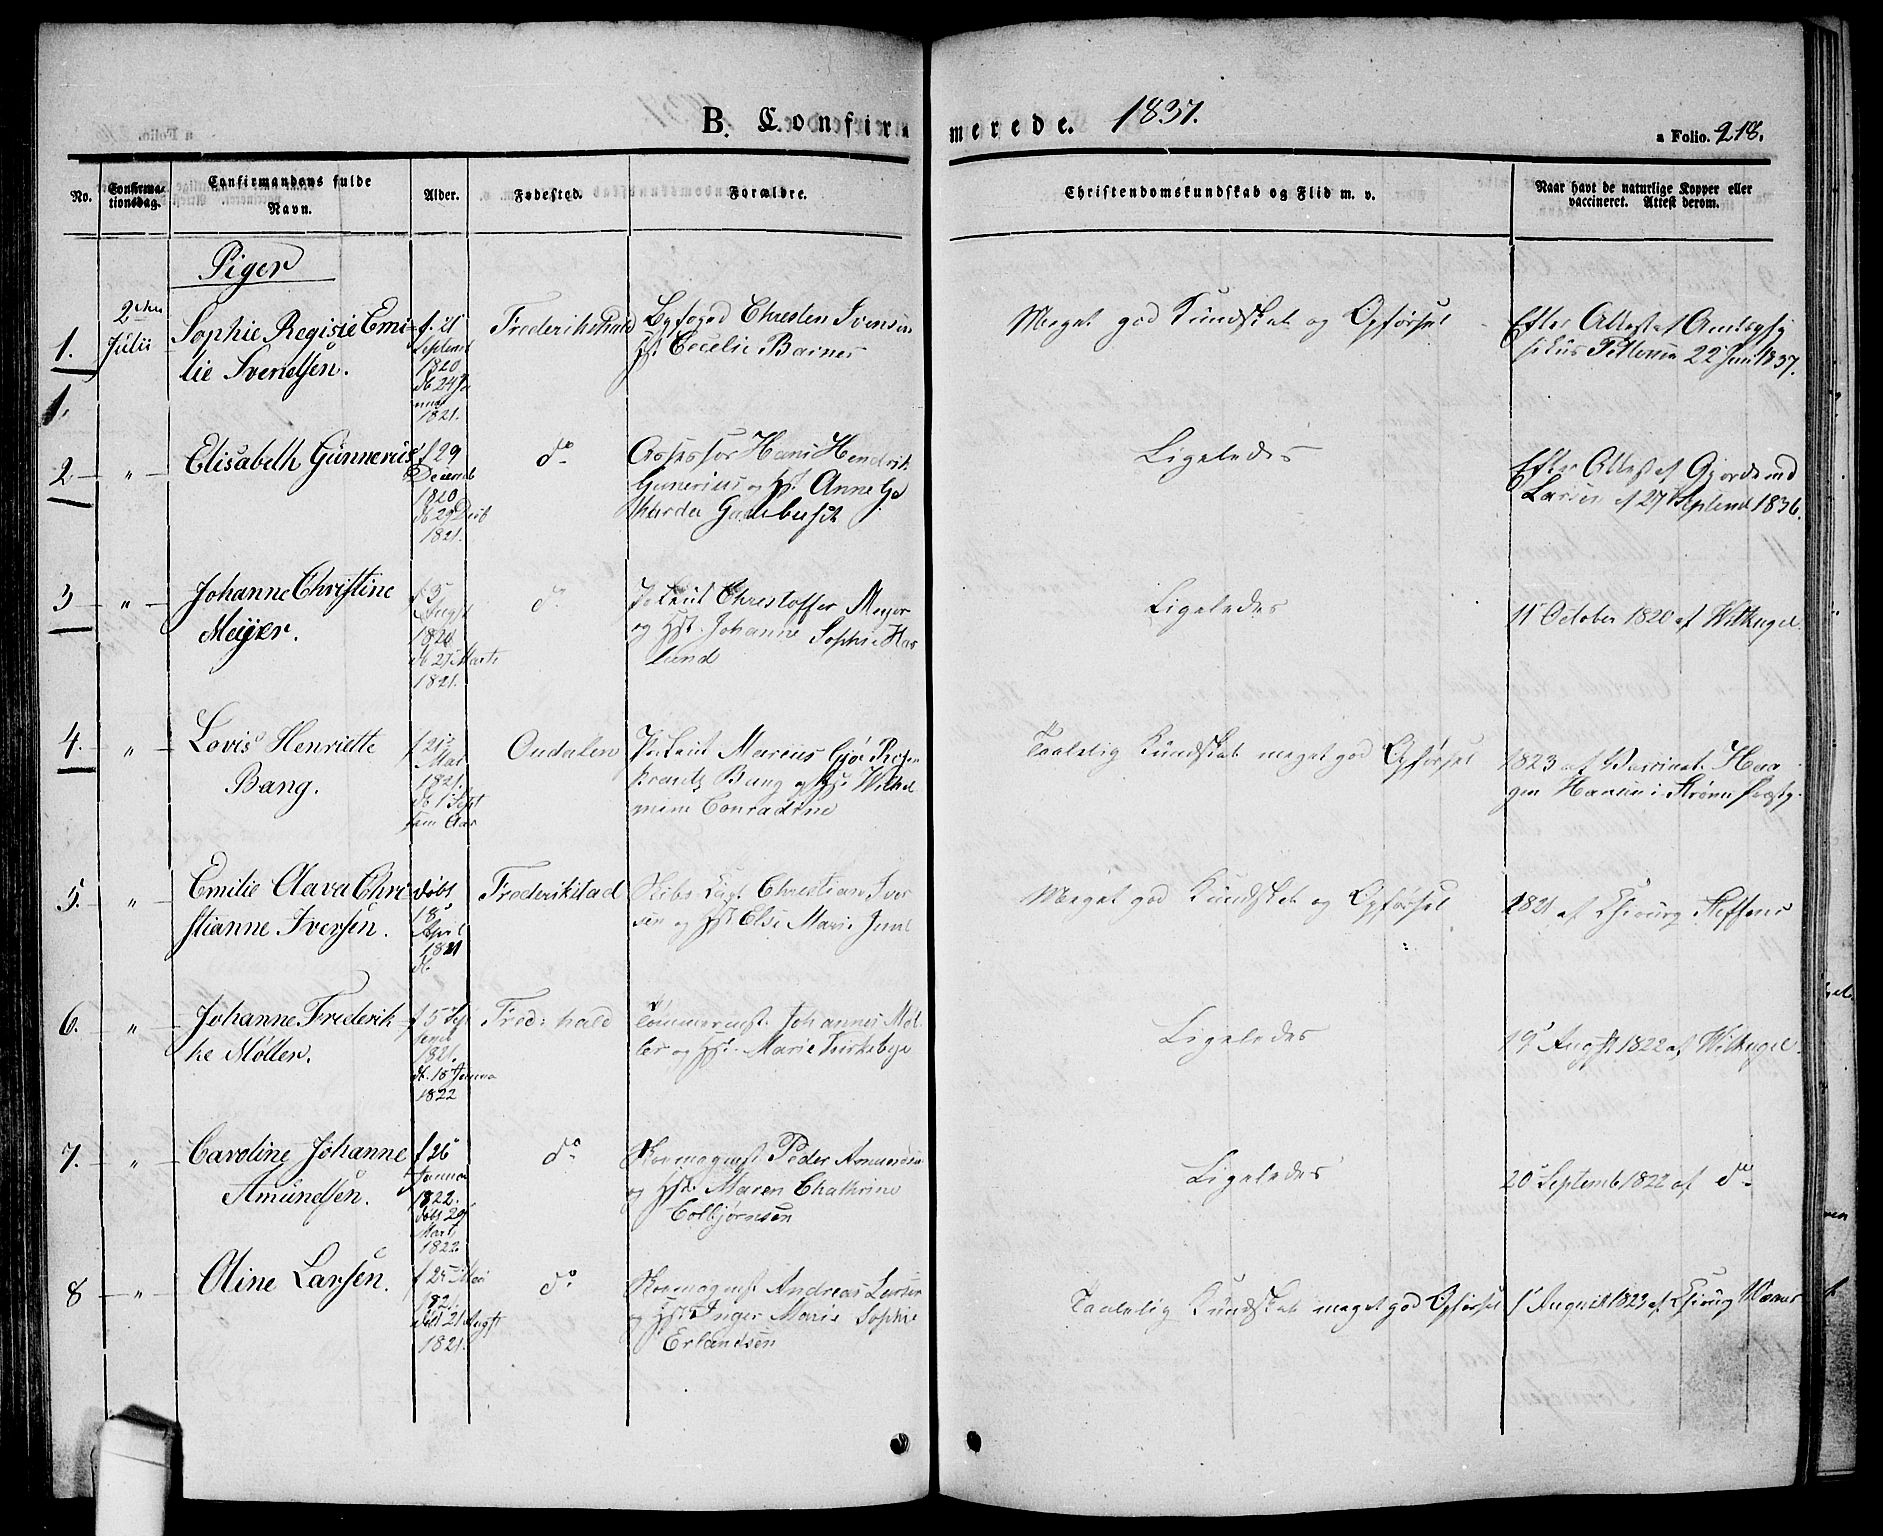 B. Confir
merede. 1837.
a Folio. 218.
No.
Confirma-
tionsdag.
Confirmandens fulde
Navn.
Alder.
Fødested.
Forældre.
Christendomskundskab og Flid m. v.
Naar havt de naturlige Kopper eller
vaccineret. Attest derom.
Piger
1.
1.
2den
Julii
Sophie Regisie Emi-
lie Svendsen.
f. 21
Septemb
1820
db 24 Ja
nuar
1821.
Frederikshald
Byfoged Christen Svensen
Hst. Cecilie Barnes
Meget god Kundskab og Opførsel
Efter Attest af Amtsphy
sikus 22 Juni 1837.
2
"
Elisabeth Gunnerus
f 29
Decemb
1820
1821.
do
Assessor Hans Hendrik
Gunerius og Hst. Anne
Ligeledes
Efter Attest af Gjordemd
Larsen af 27 Septemb 1836.
3
"
Johanne Christine
Meyer.
f 3
Augst
1820
db 27 Marts
1821.
do
Pr Leut Christoffer Meyer
og Hst. Johanne Sophie Has
lund
Ligeledes
11 October 1820 af Withugel.
4.
"
Lovis Henriette
Bang.
f 21
Mai
1821.
db 1 Sept
sam Aar
Oudalen
Pr Leut Marcus Gjøe Rosen
krantz Bang og Hst. Wilhel
mine Conradine
Taalelig Kundskab meget god Opførsel
1823 af Vaccinat. Haa
gen Hansen i Strøms Præstg.
5.
"
Emilie Olava Chri
stianne Iversen.
døbt
18
April
1821
Frederikstad
Skibs Capt Christian Iver
sen og Hst Else Marie
Meget god Kundskab og Opførsel
1821 af Chirurg Steffens
6.
"
Johanne Frederik-
ke Møller.
f 5 Sep
temb
1821.
db. 18 Janua
1822
Fred: hald
Tømmermst. Johannes Møl-
ler og Hst. Marie Kirkebye
Ligeledes
19 Augst 1822 af Withugel.
7.
"
Caroline Johanne
Amundsen.
f 26
Janua
1822.
døbt 29
Mart
1822
do
Skomagmst. Peder Amundsen
og Hst. Maren Chathrine
Colbjørnsen
Ligeledes
20 Septemb 1822 af do
8
"
Oline Larsen.
f 25 Mai
1821.
døbt 21 Augst
1821.
do
Skomagmst Andreas Larsen
og Hst Inger Marie Sophie
Erlandsen
Taalelig Kundskab meget god Opførsel
1 August 1823 af Chirurg